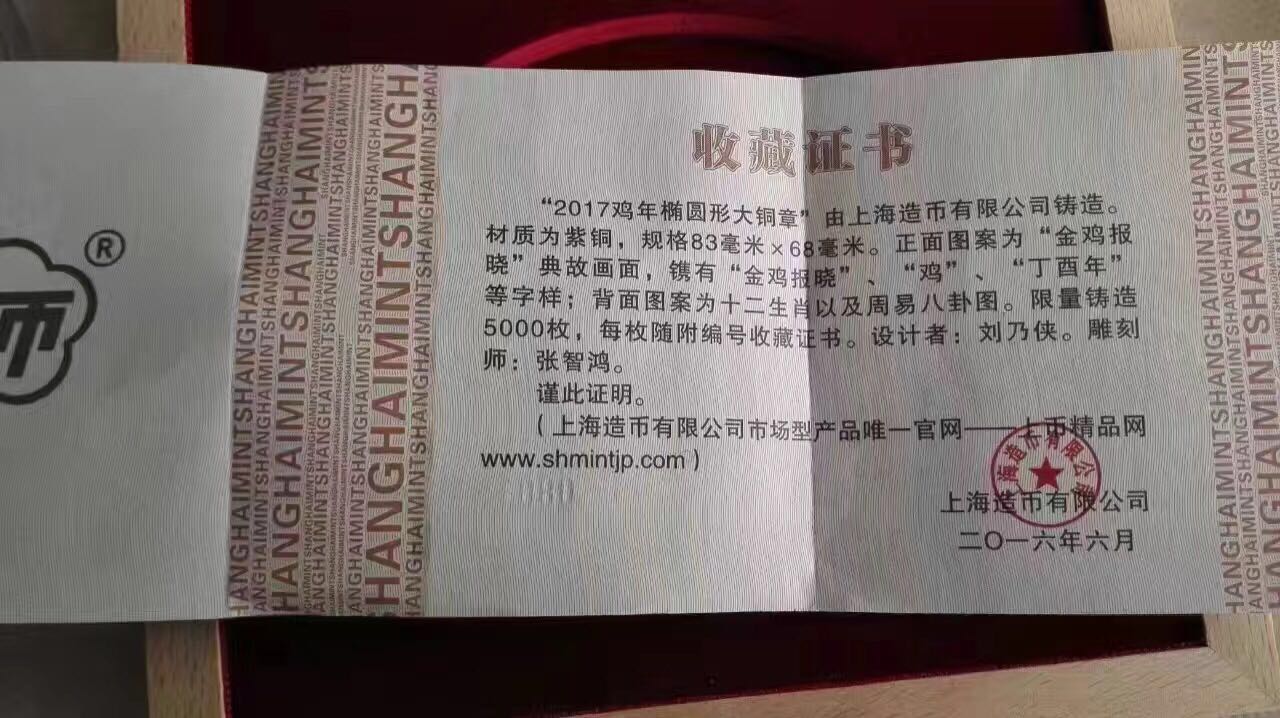 币
®
SHANGHAIMINT
收藏证书
“2017鸡年椭圆形大铜章”由上海造币有限公司铸造。
材质为紫铜，规格83毫米×68毫米。正面图案为“金鸡报
晓”典故画面，镌有“金鸡报晓”、“鸡”、“丁酉年”
等字样；背面图案为十二生肖以及周易八卦图。限量铸造
5000枚，每枚随附编号收藏证书。设计者：刘乃侠。雕刻
师：张智鸿。
谨此证明。
（上海造币有限公司市场型产品唯一官网——上币精品网
www.shmintjp.com）
上海造币有限公司
二〇一六年六月